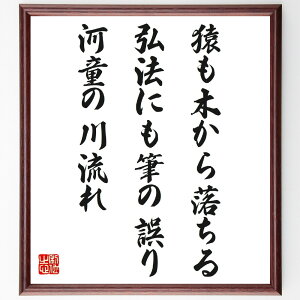 猿も木から落ちる
弘法にも筆の誤り
河童の川流れ